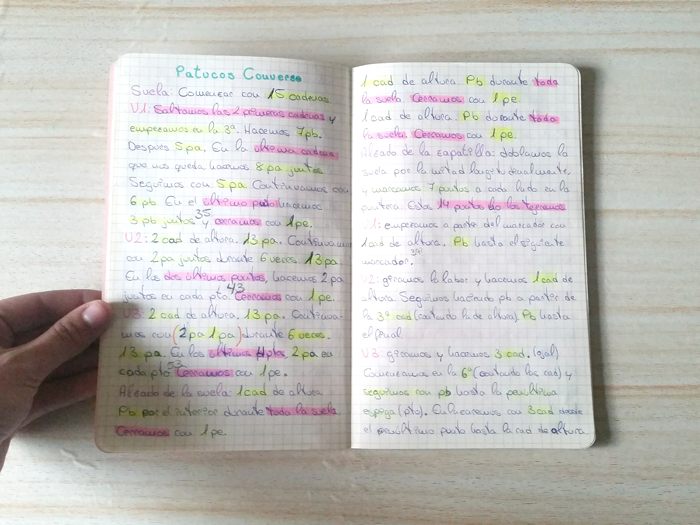 Patucos Converse
Suela: Comenzar con 15 cadenas
V1: Saltamos las 2 primeras cadenas y
empezamos en la 3ª. Hacemos 7pb.
Después 5pa. En la última cadena
que nos queda hacemos 8 pa juntos
Seguimos con 5pa. Continuamos con
6 pb En el último punto hacemos
3 pb juntos 35 y cerramos con 1pe.
V2: 2 cad de altura. 13 pa. Continuamos
con 2pa juntos durante 6 veces. 13pa
En los dos últimos puntos, hacemos 2pa
juntos en cada pto. 43 Cerramos con 1 pe.
V3: 2 cad de altura, 13 pa. Continua-
mos con (2pa 1pa) durante 6 veces.
13 pa. En los últimos ptos, 2pa en
cada pto 53 Cerramos con 1pe.
Alzado de la suela: 1cad de altura
Pb por el interior durante toda la suela
Cerramos con 1 pe
1 cad de altura. Pb durante toda
la suela Cerramos con 1 pe
1 cad de altura. Pb durante toda
la suela Cerramos con 1 pe.
Alzado de la zapatilla: doblamos la
suela por la mitad longitudinalmente
y marcamos 7 puntos a cada lado en la
puntera. Estos 14 puntos no los tejemos
1: empezamos a partir del marcador con
1 cad de altura. Pb hasta el siguiente
marcador.
V2: giramos la labor y hacemos 1cad de
altura. Seguimos haciendo pb a partir de
la 3ª cad (contando la de altura). Pb hasta
el final
V3: giramos y hacemos 3 cad. (ojal)
Comenzamos en la 6ª (contando las cad) y
seguimos con pb hasta la penúltima
espiga (pto). Enlazamos con 3cad desde
el penúltimo punto hasta la cad de altura